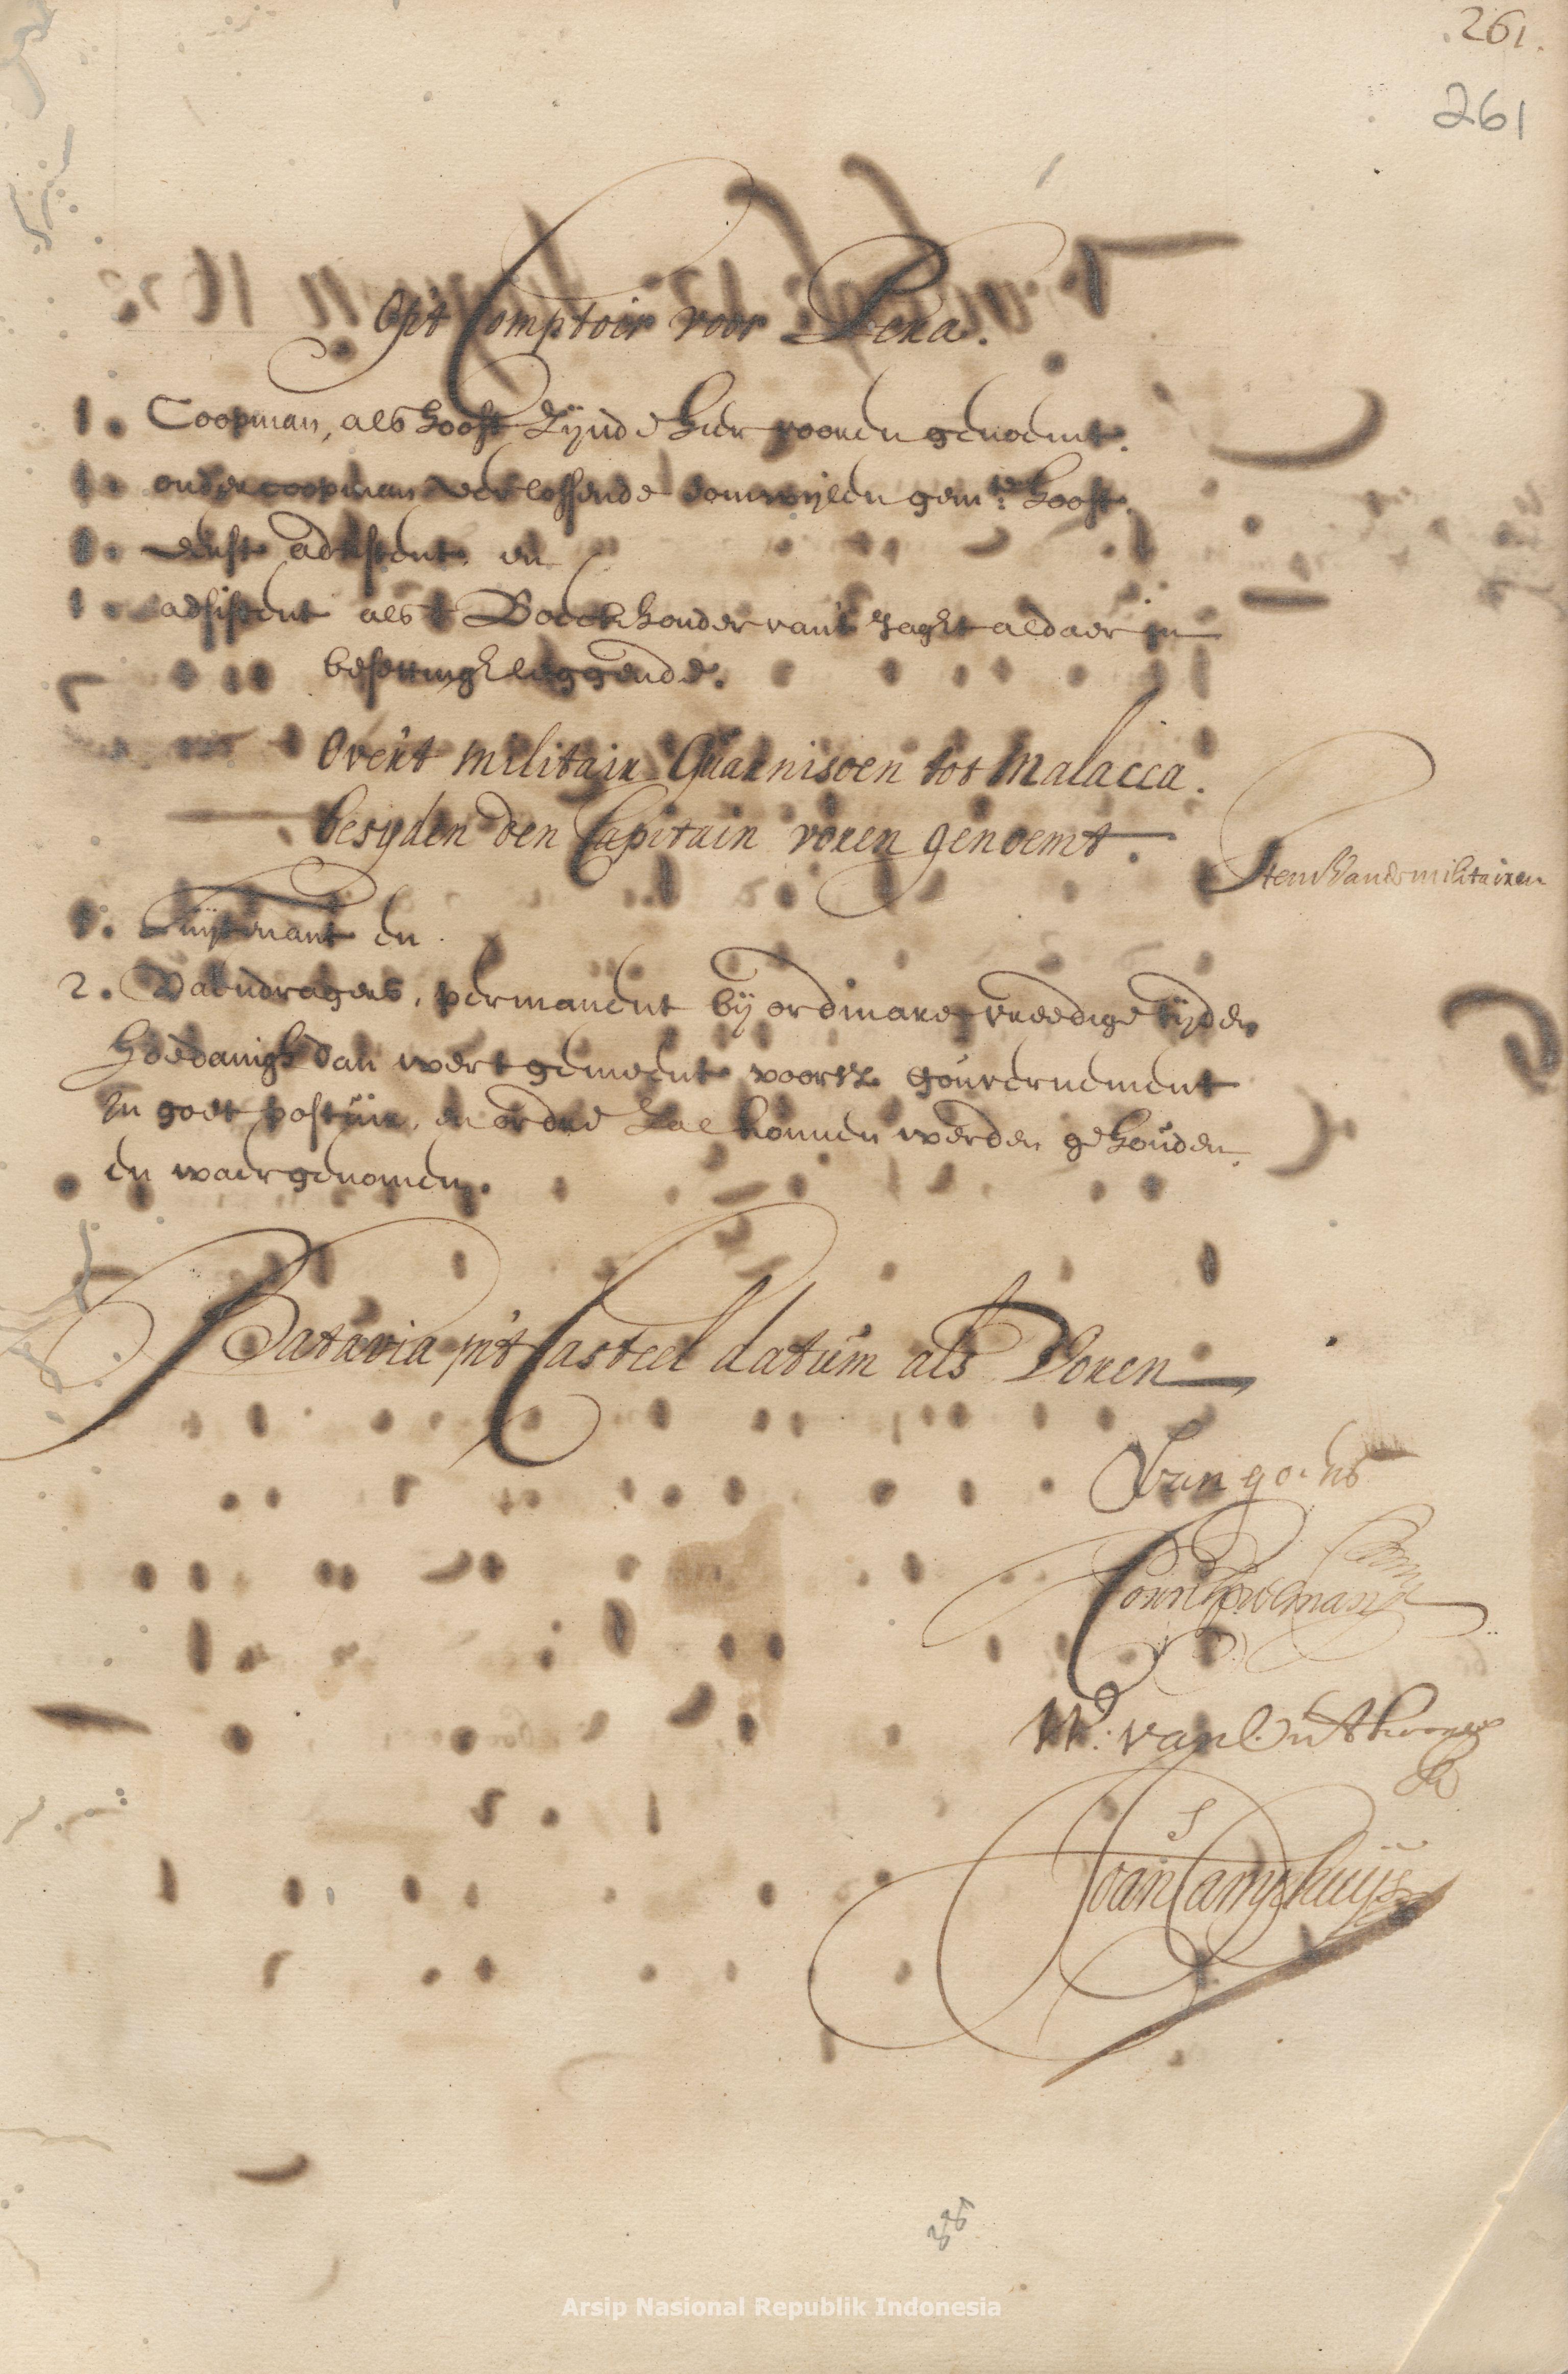 261.
261
Op't Comptoir voor Pera.
1. Coopman, als hooft zijnde hier vooren genoemt.
1. ondercoopman verlossende somwijlen gem:te hooft.
1. eerste adsistent en
1. adsistent als Boeckhouder van't Jaght aldaer in
besettingh leggende.
Over't militair Guarnisoen tot Malacca.
besyden den Capitain voren genoemt.
Item Vande militairen
1. Luijtenant en
2. Vaendragers, permanent bij ordinare vreedige tijden
hoedanigh dan wert gemeent voorsz. gouvernement
in goet postuir, en ordre zal konnen werden gehouden,
en waergenomen.
Batavia in't Casteel datum als Voren
Van goens
Corn Speelman
W: van Outhoorn
Joan Camphuijs
Arsip Nasional Republik Indonesia